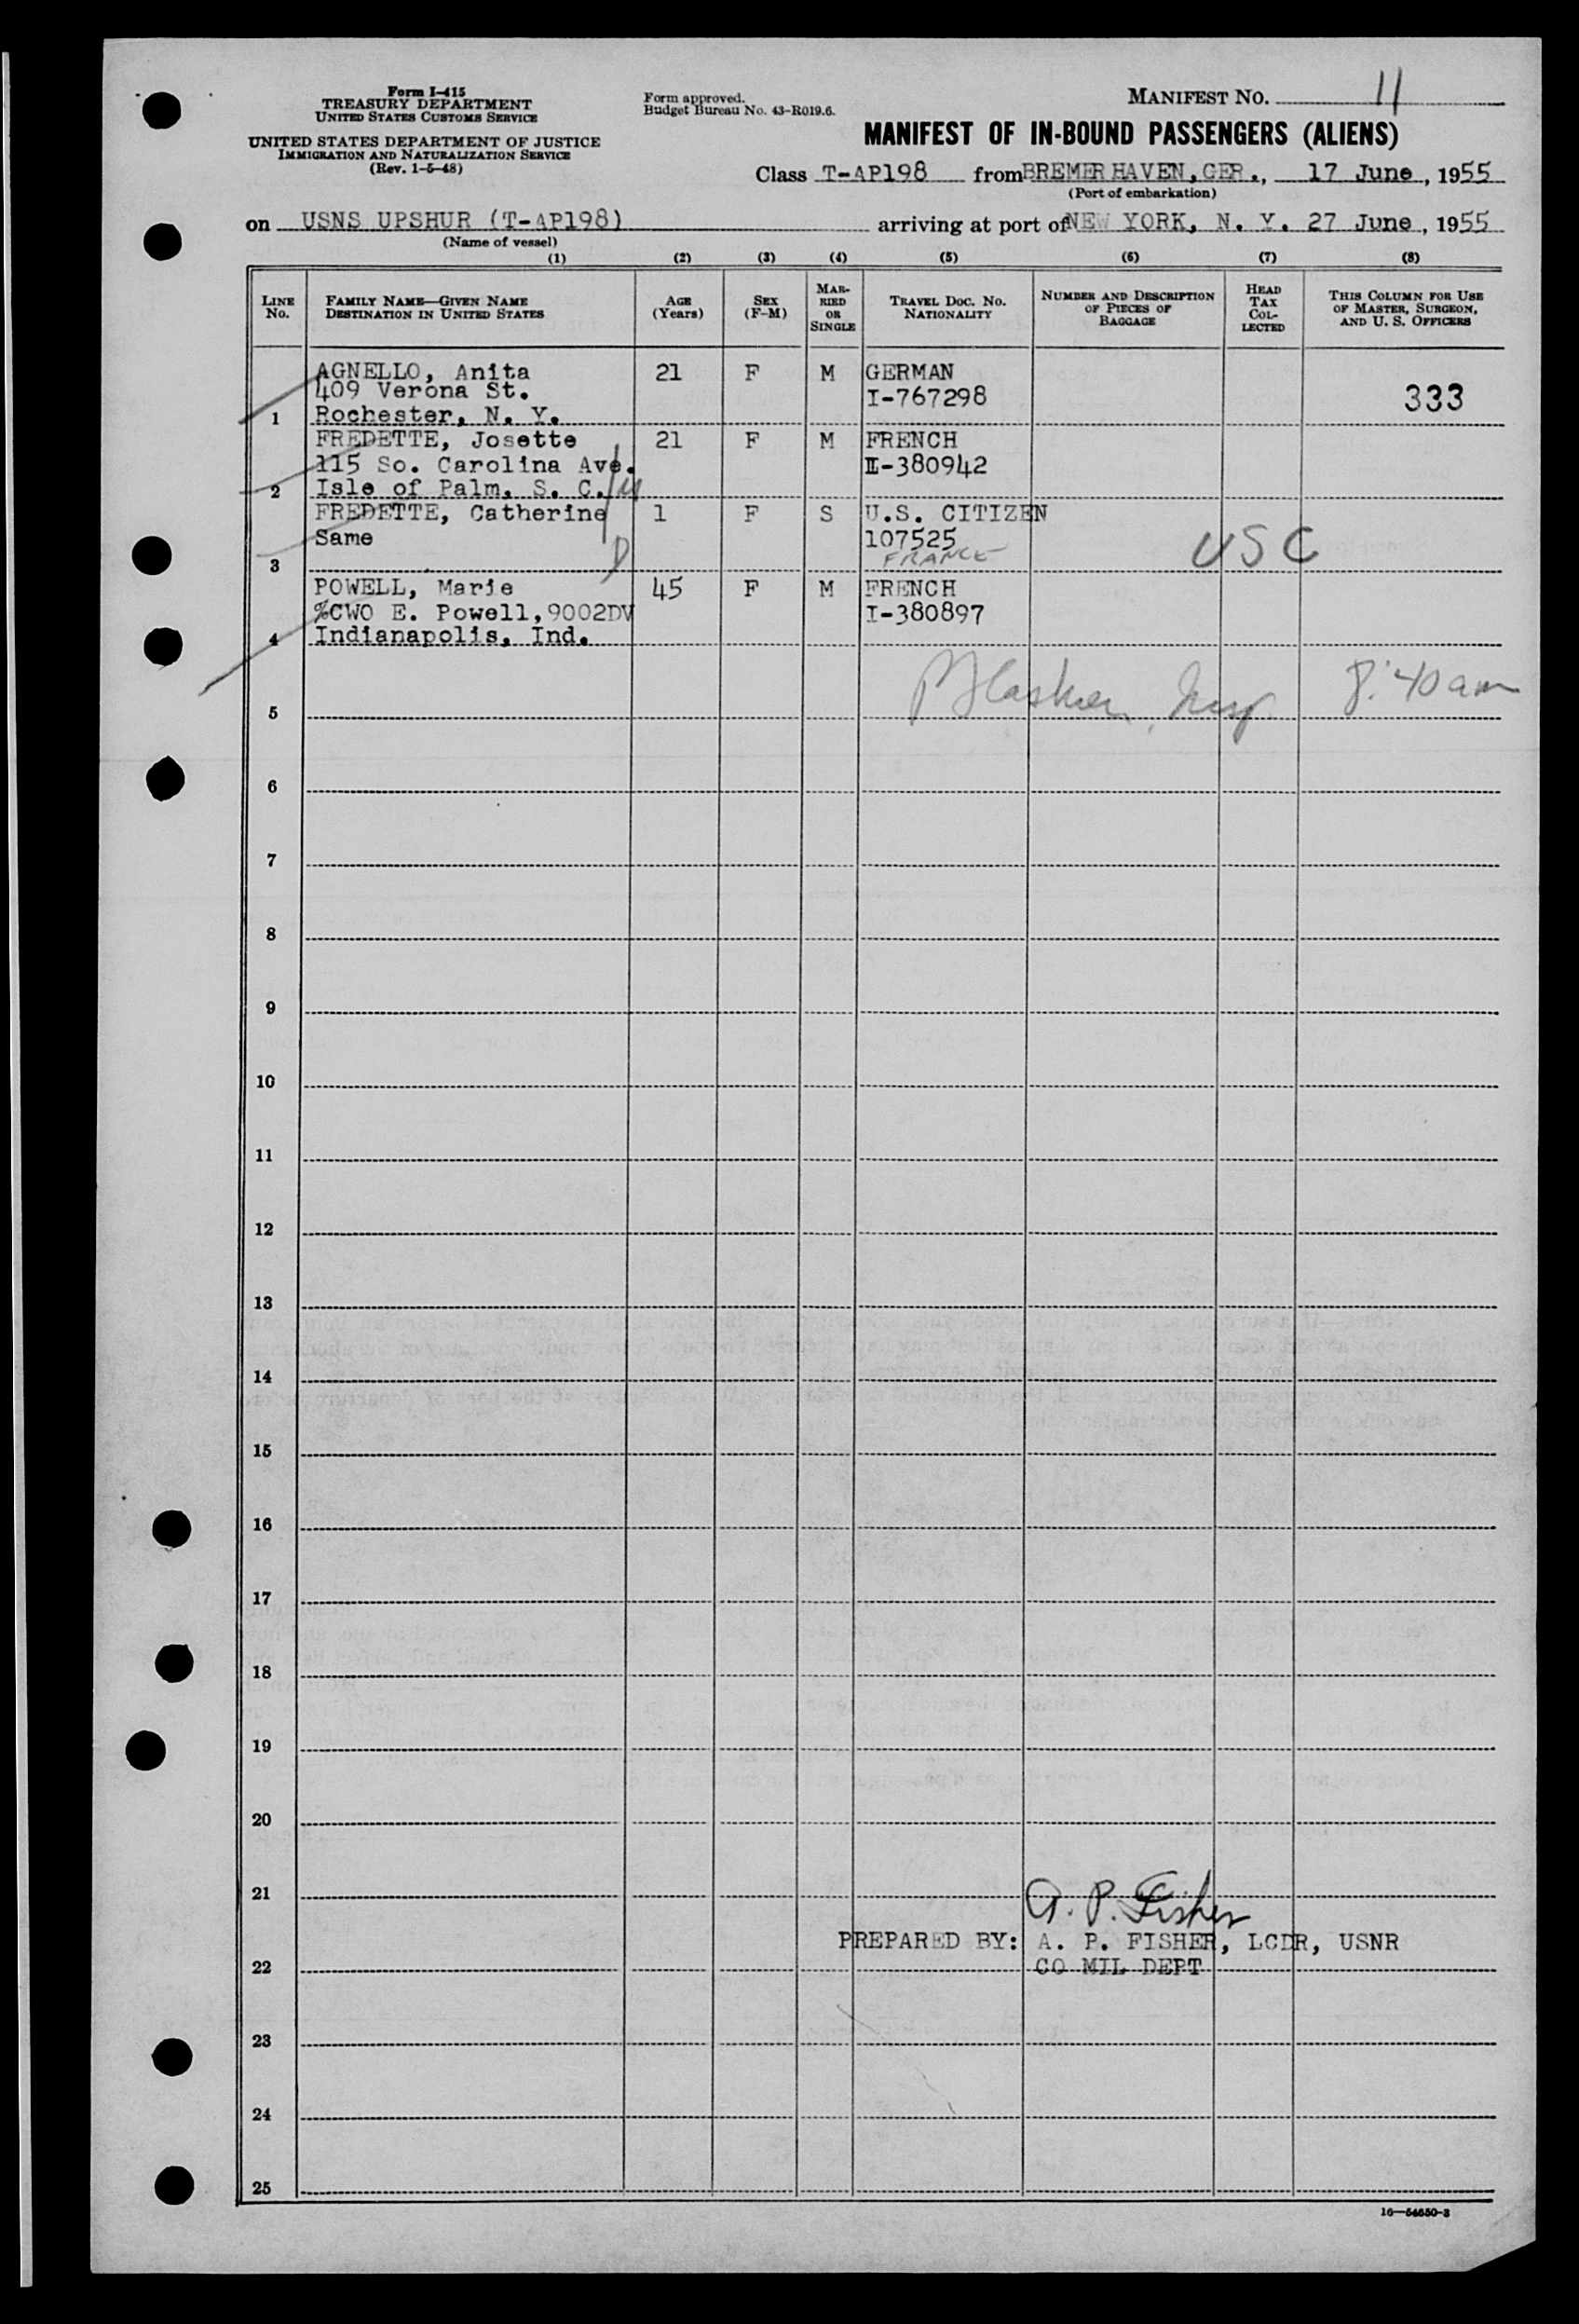 Form I-415
TREASURY DEPARTMENT
UNITED STATES CUSTOMS SERVICE
UNITED STATES DEPARTMENT OF JUSTICE
IMMIGRATION AND NATURALIZATION SERVICE
(Rev. 1-5-48)
Form approved.
Budget Bureau No. 43-R019.6.
MANIFEST NO. 11
MANIFEST OF IN-BOUND PASSENGERS (ALIENS)
Class T-AP198 from BREMERHAVEN, GER., 17 June, 1955
(Port of embarkation)
on USNS UPSHUR (T-AP198) arriving at port of NEW YORK, N. Y. 27 June, 1955
(Name of vessel)
(1) (2) (3) (4) (5) (6) (7) (8)
LINE No.
FAMILY NAME—GIVEN NAME
DESTINATION IN UNITED STATES
AGE
(Years)
SEX
(F-M)
MAR-
RIED
OR
SINGLE
TRAVEL DOC. NO.
NATIONALITY
NUMBER AND DESCRIPTION
OF PIECES OF
BAGGAGE
HEAD
TAX
COL-
LECTED
THIS COLUMN FOR USE
OF MASTER, SURGEON,
AND U. S. OFFICERS
AGNELLO, Anita 21 F M GERMAN
409 Verona St. I-767298 333
1 Rochester, N. Y.
FREDETTE, Josette 21 F M FRENCH
115 So. Carolina Ave. II-380942
2 Isle of Palm, S. C.
FREDETTE, Catherine 1 F S U.S. CITIZEN
Same 107525 USC
3 FRANCE
POWELL, Marie 45 F M FRENCH
%CWO E. Powell,9002DV I-380897
4 Indianapolis, Ind.
8:40 am
5
6
7
8
9
10
11
12
13
14
15
16
17
18
19
20
21 A. P. Fisher
PREPARED BY: A. P. FISHER, LCDR, USNR
22 CO MIL DEPT
23
24
25
16—54650-3